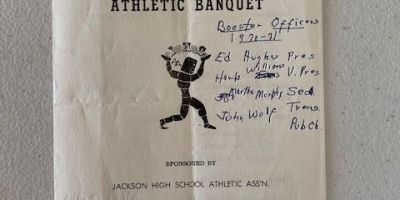 ATHLETIC BANQUET
Booster Officers
1970-71
Ed Hughes Pres
Herb Williams V. Pres
Martha Murphy Sec.
John Wolf Treas
Pub Ch.
SPONSORED BY
JACKSON HIGH SCHOOL ATHLETIC ASS'N.